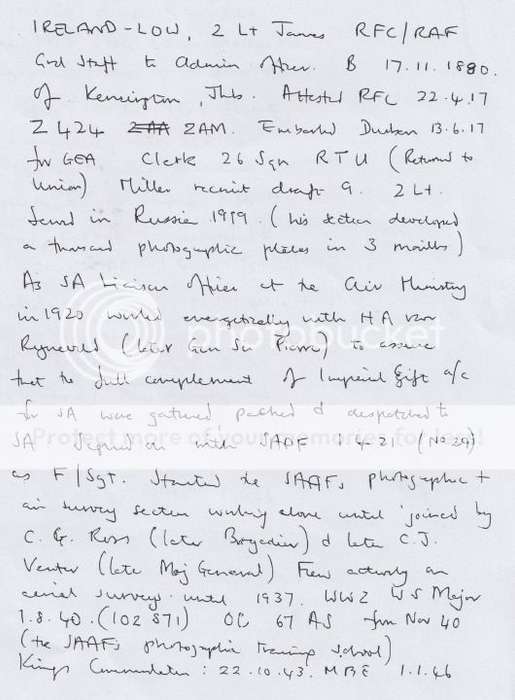 IRELAND-LOW, 2 Lt James RFC/RAF
Grd Staff to Admin Officer. B 17.11.1880.
Of Kensington, Jhb. Attested RFC 22.4.17
2424 2AA 2AM. Embarked Durban 13.6.17
for GEA Clerk 26 Sqn RTU (Returned to
Union) Miller recruit draft 9. 2 Lt.
Served in Russia 1919. (his section developed
a thousand photographic plates in 3 months)
As SA Liaison Officer at the Air Ministry
in 1920 worked energetically with H A van
Ryneveld (later Gen Sir Pierre) to assure
that the full complement of Imperial Gift a/c
for SA were gathered packed & despatched to
SA Signed on with SAAF 1.4.21 (No 29)
as F/Sgt. Started the SAAFs photographic +
air survey section working alone until joined by
C. G. Ross (later Brigadier) & later C.J.
Venter (late Maj General) Flew actively on
aerial surveys until 1937. WW2 WS Major
1.8.40. (102871) OC 67 AS from Nov 40
(the SAAFs photographic training school)
Kings Commendation: 22.10.43. MBE 1.1.46
photobucket
Protect more of your memories for less!